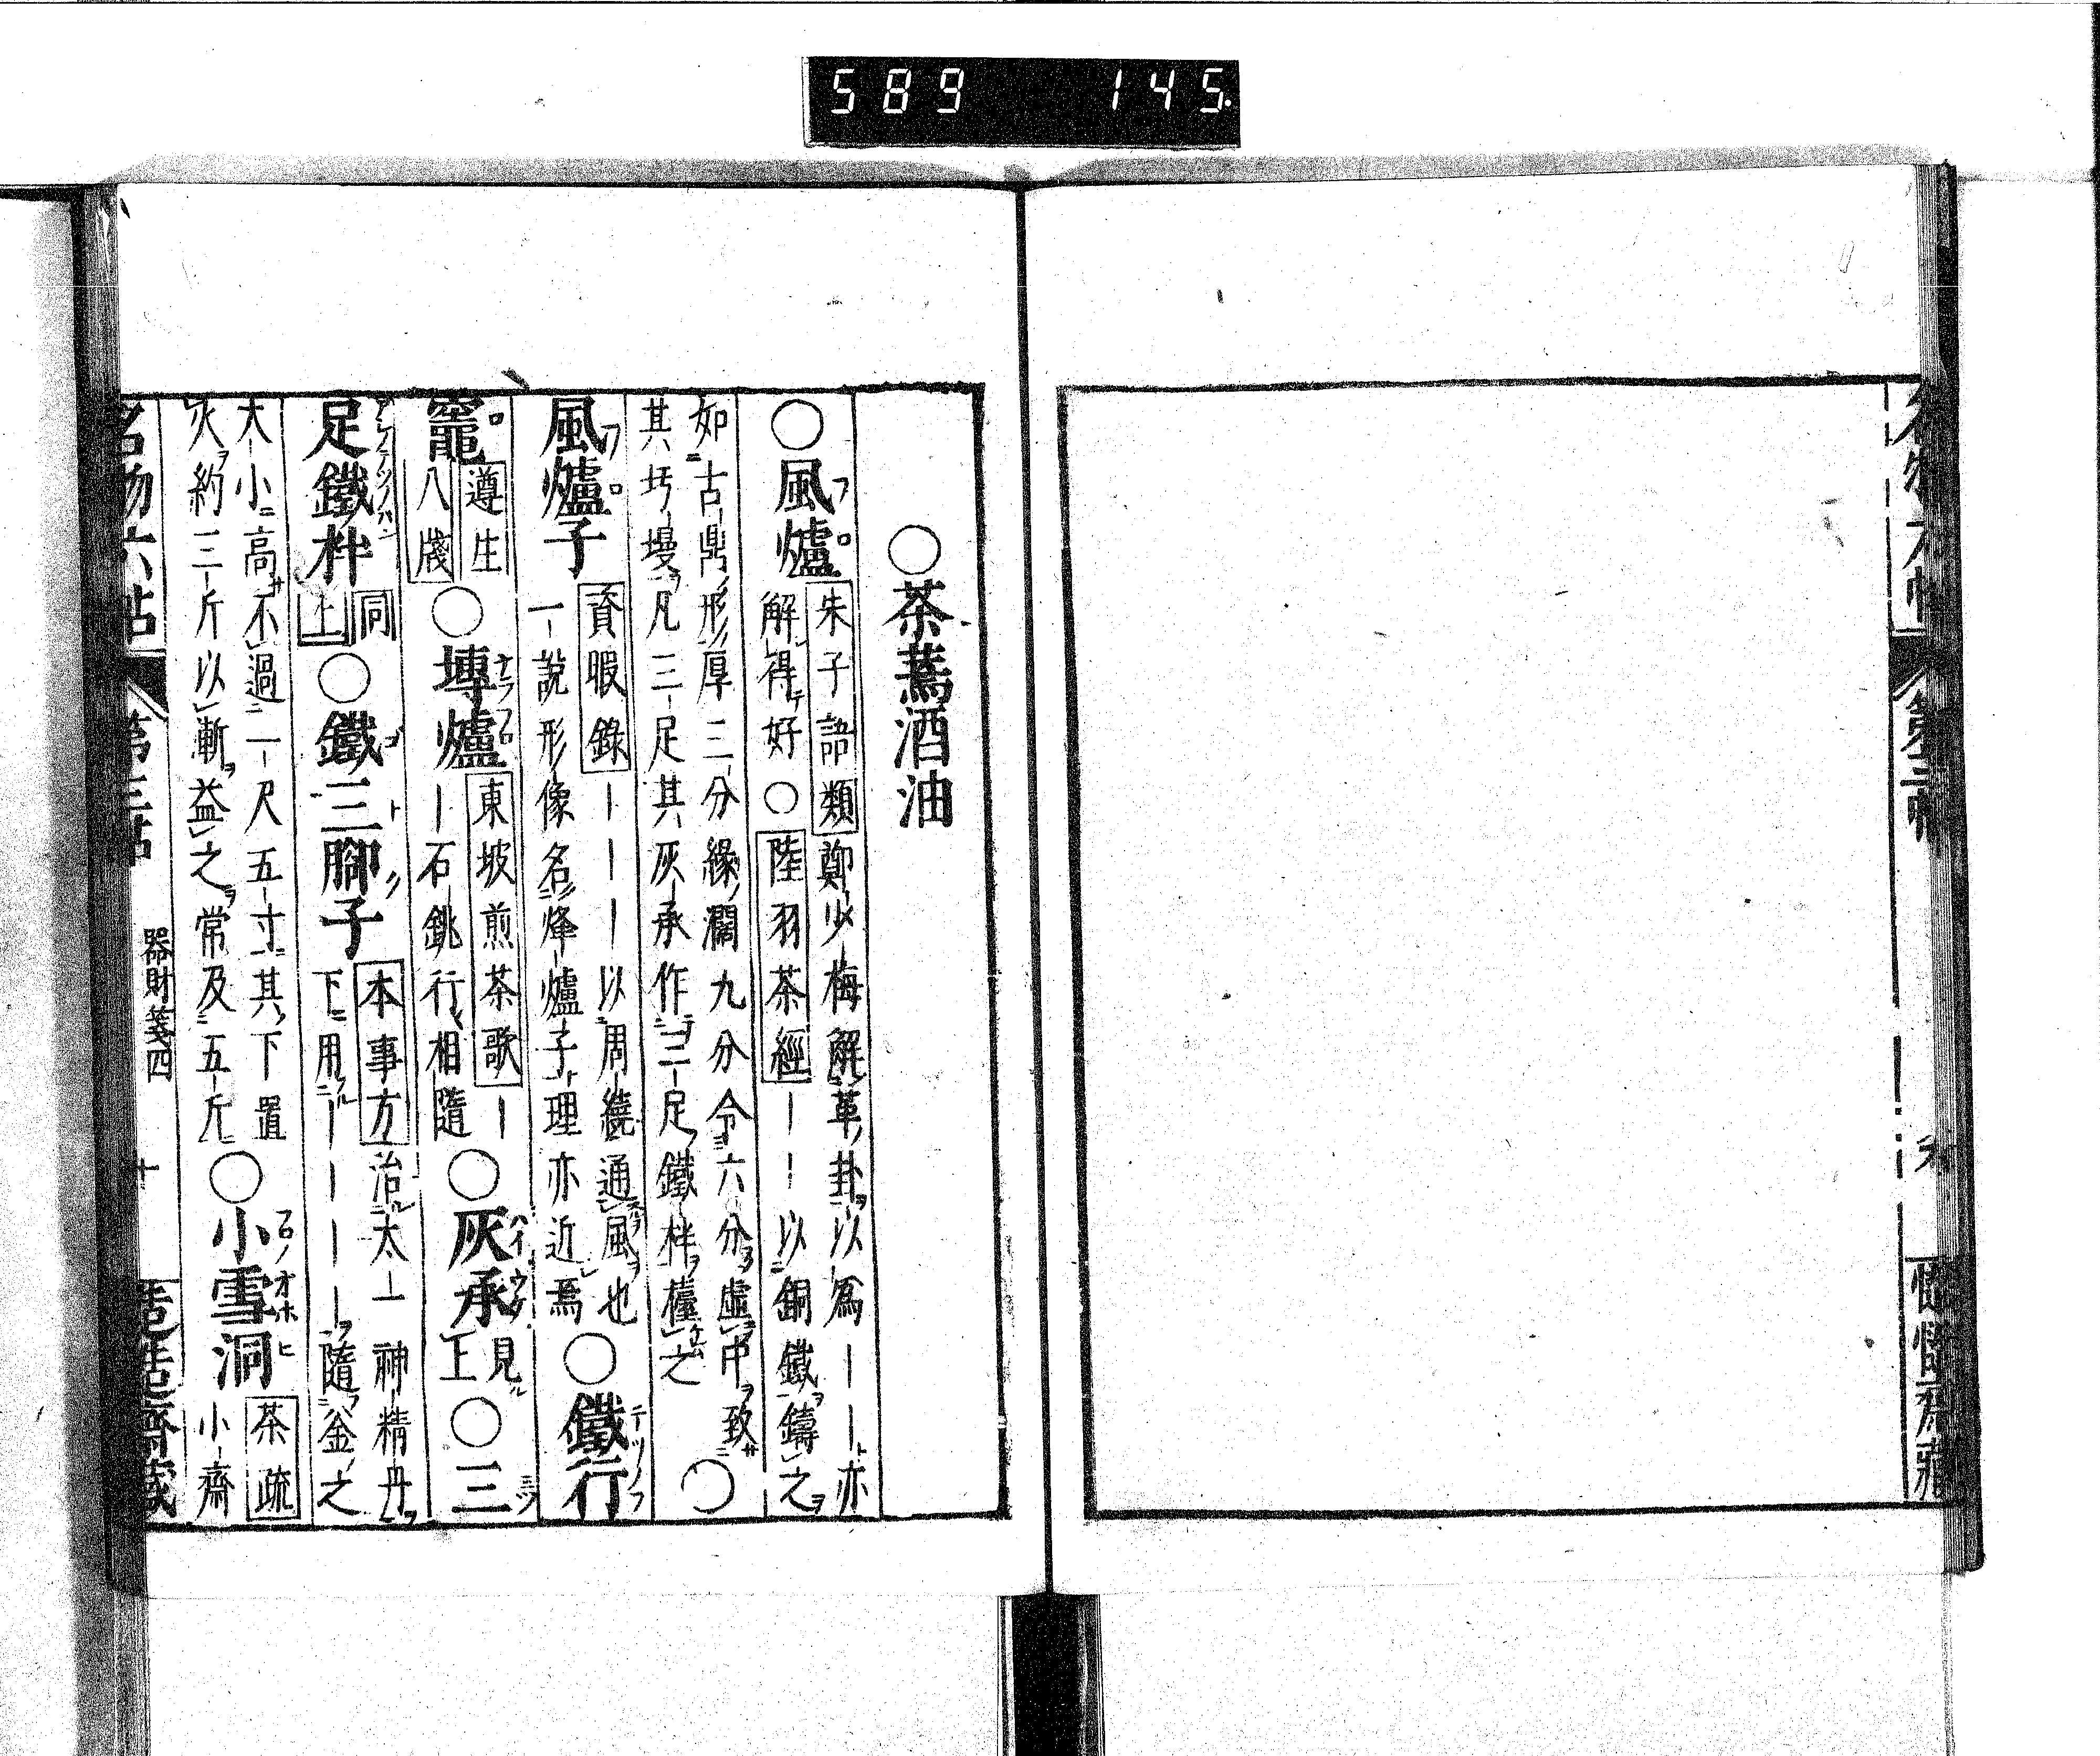 589 145.
第三帖
○茶蔫酒油
○風爐 朱子語類 鄭少梅解革卦以爲｜｜亦
解得好○陸羽茶經｜｜以銅鐵鑄之
如古鼎形厚三分緣濶九分令六分虛中致
其圬墁凡三足其灰承作三足鐵柈檯之 ○
風爐子 資暇錄｜｜｜以周繞通風也
一說形像名烽爐子理亦近焉 ○鐵行
竈 遵生
八牋 ○塼爐 東坡煎茶歌｜
｜石銚行相隨 ○灰承 見
上 ○三
足鐵柈 同
上 ○鐵三腳子 本事方 治太上神精丹
下用｜｜｜｜隨釜之
大小高不過一尺五寸其下置
火約三斤以漸益之常及五斤 ○小雪洞 茶疏
小齋
名物六帖 第三帖 器財箋四 十